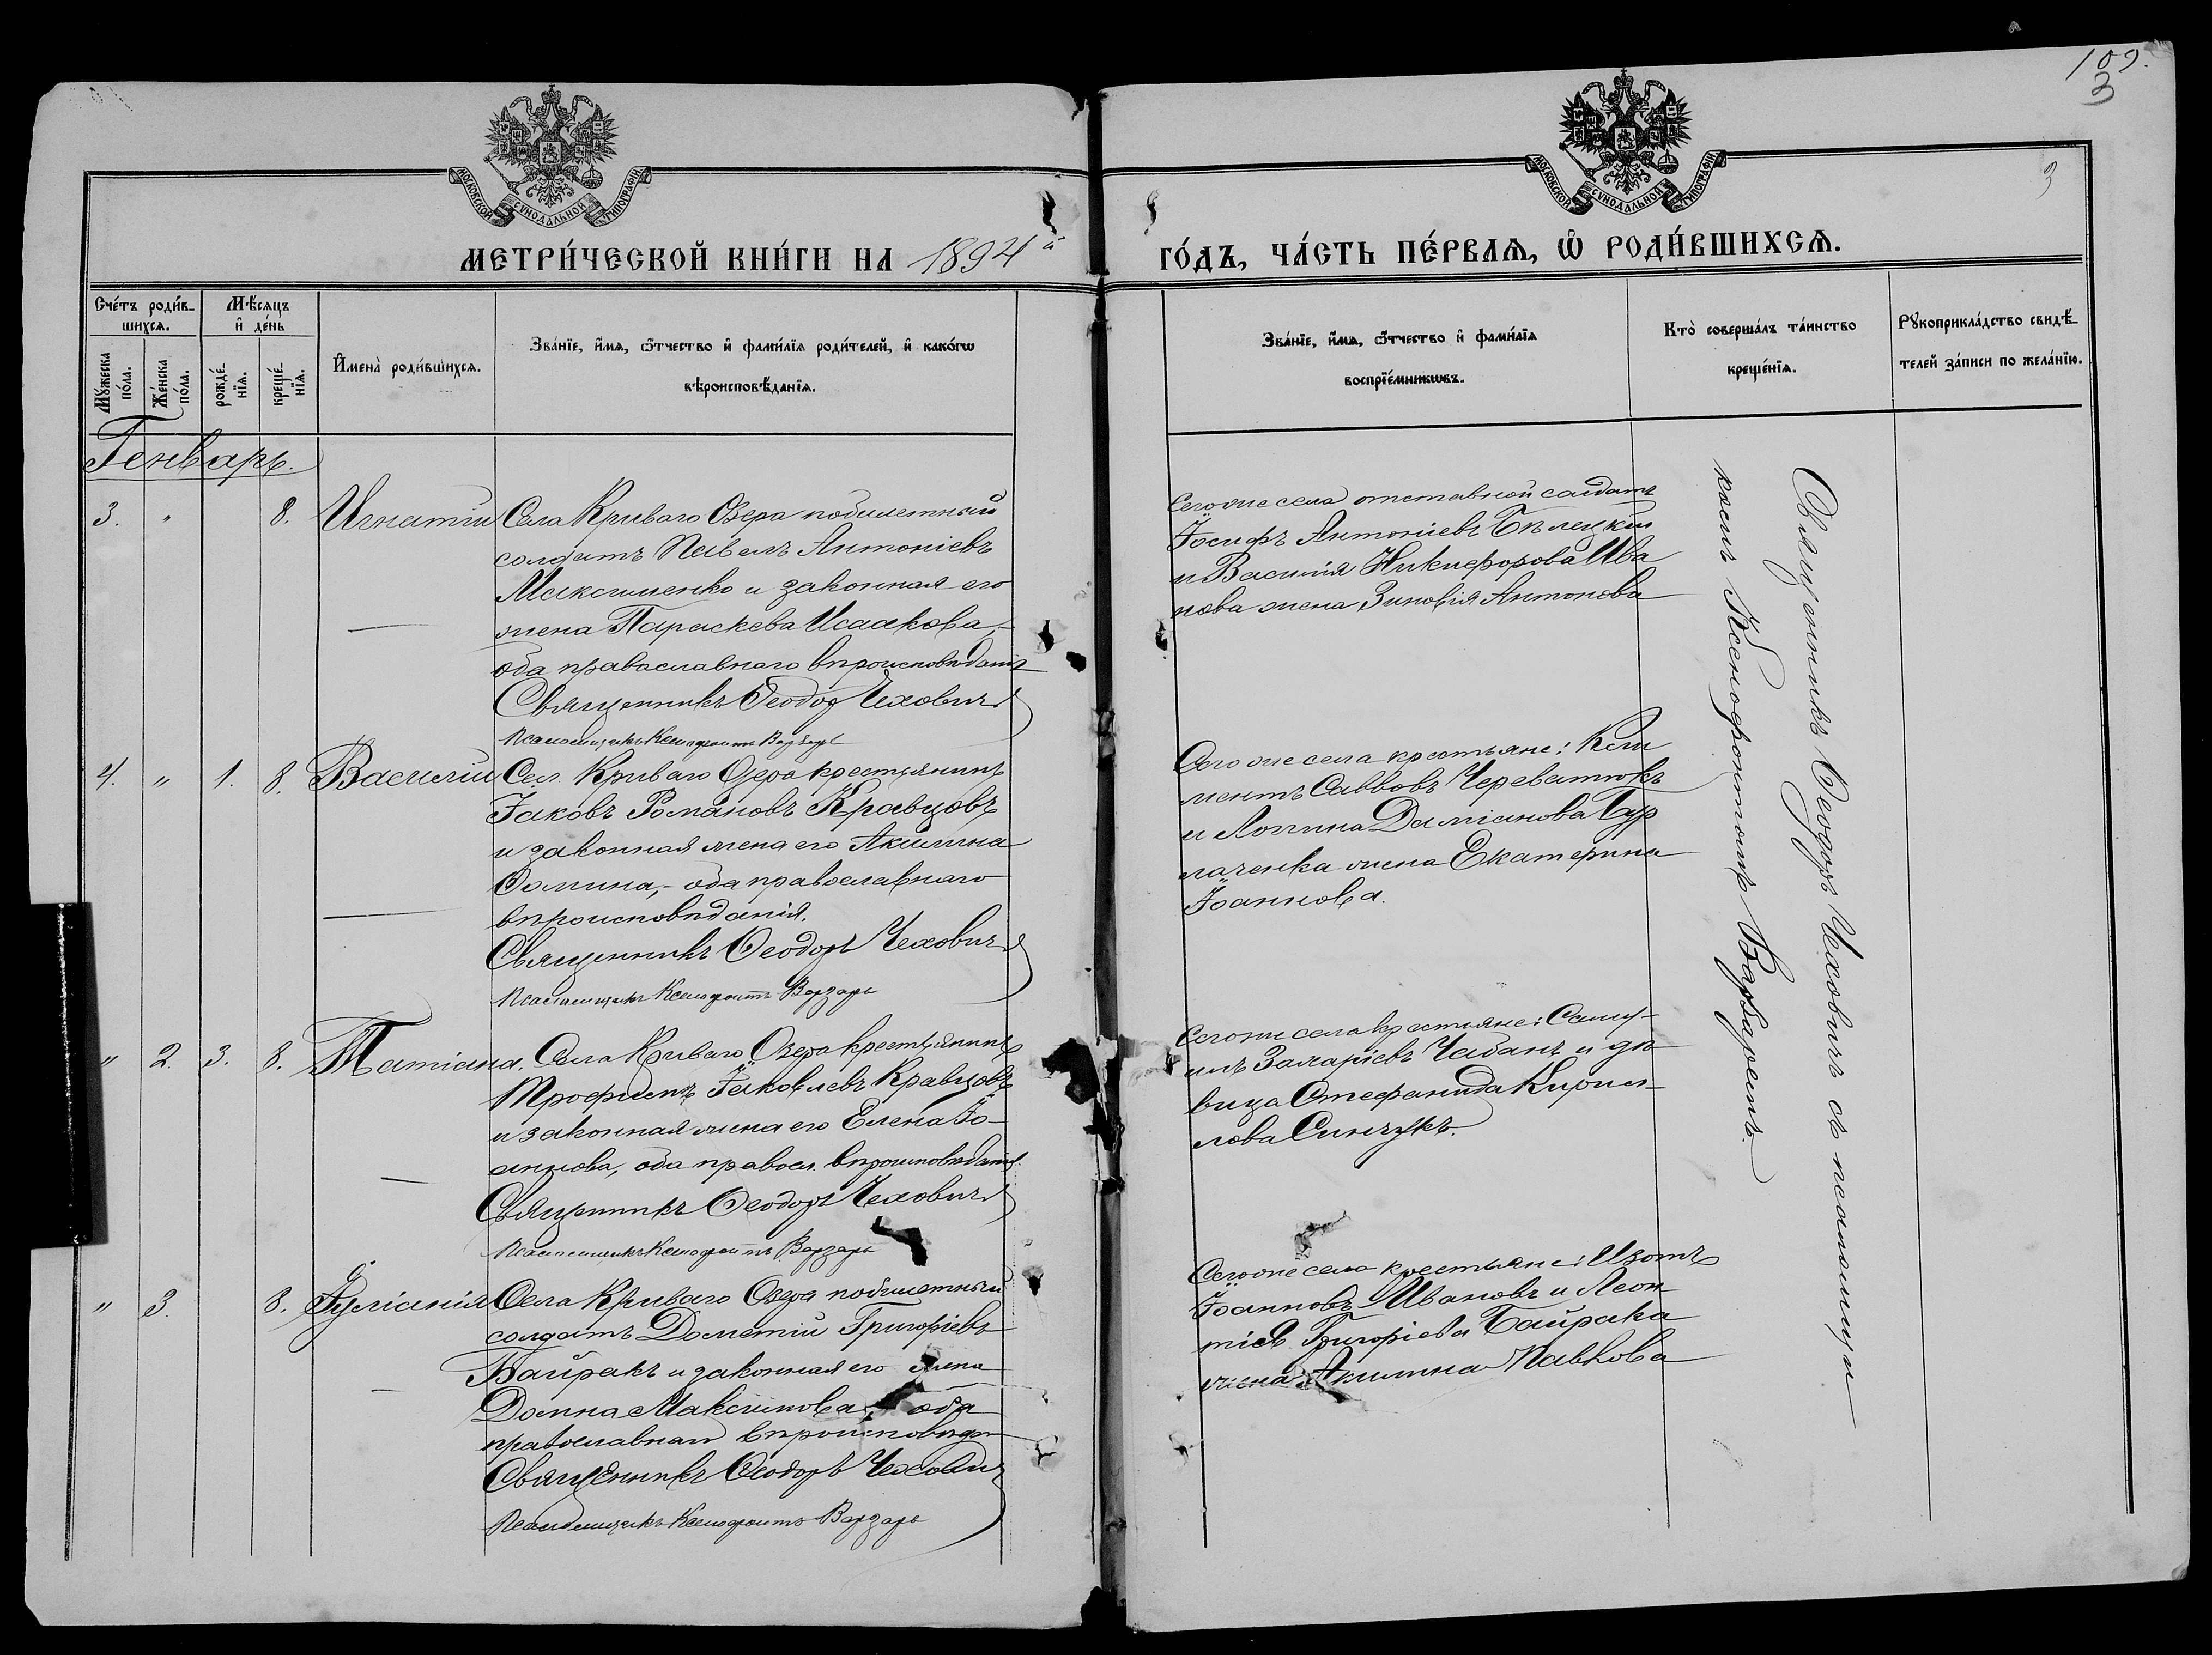 109.
3
3
МОСКОВСКОЙ СѴНОДАЛЬНОЙ ТИПОГРАФІИ
МОСКОВСКОЙ СѴНОДАЛЬНОЙ ТИПОГРАФІИ
МЕТРИ́ЧЕСКОЙ КНИ́ГИ НА 1894й ГО́ДЪ, ЧА́СТЬ ПЕ́РВАѦ, Ѡ҆ РОДИ́ВШИХСѦ.
Сче́тъ роди́в-
шихсѧ.
Мꙋ́жеска
по́ла.
Же́нска
по́ла.
Мѣ́сѧцъ
и҆ де́нь
рожде́-
нїѧ.
креще́-
нїѧ.
И҆мена̀ роди́вшихсѧ.
Зва́нїе, и҆́мѧ, ѻ҆́тчество и҆ фами́лїѧ роди́телей, и҆ како́гѡ
вѣроисповѣ́данїѧ.
Зва́нїе, и҆́мѧ, ѻ҆́тчество и҆ фами́лїѧ
воспрїе́мникѡвъ.
Кто̀ соверша́лъ та́инство
креще́нїѧ.
Рꙋкоприкла́дство свидѣ́-
телей за́писи по жела́нїю.
Генварь.
3. " 8. Игнатій
Села Криваго Озера побилетный
солдатъ Павелъ Антоніевъ
Максименко и законная его
жена Параскева Исаакова,-
оба православнаго вѣроисповѣданія
Священникъ Ѳеодоръ Чеховичъ
Псаломщикъ Ксенофонтъ Варзарь
Сегоже села отставной солдатъ
Іосифъ Антоніевъ Бѣлецкій
и Василія Никифорова Ива
нова жена Зиновія Антонова
4. " 1. 8. Василій
Села Криваго Озера крестьянинъ
Іаковъ Романовъ Кравцовъ
и законная жена его Акилина
Ѳомина,- оба православнаго
вѣроисповѣданія.
Священникъ Ѳеодоръ Чеховичъ
Псаломщикъ Ксенофонтъ Варзарь
Сегоже села крестьяне: Кли
ментъ Саввовъ Череватюкъ
и Логина Даміанова Бур
лаченка жена Екатерина
Іоаннова.
" 2. 3. 8. Татіана.
Села Криваго Озера крестьянинъ
Трофимъ Іаковлевъ Кравцовъ
и законная жена его Елена Іо-
аннова, оба правосл. вѣроисповѣданія.
Священникъ Ѳеодоръ Чеховичъ
Псаломщикъ Ксенофонтъ Варзарь
Сегоже села крестьяне: Саму-
илъ Захаріевъ Чабанъ и дѣ
вица Стефанида Кирил-
лова Синчукъ.
" 3. 8. Іуліанія
Села Криваго Озера побилетный
солдатъ Дометій Григоріевъ
Байракъ и законная его жена
Домна Максимова, оба
православнаго вѣроисповѣдан
Священникъ Ѳеодоръ Чеховичъ
Псаломщикъ Ксенофонтъ Варзарь
Сегоже села крестьяне: Изотъ
Іоанновъ Ивановъ и Леон
тія Григоріева Байрака
жена Акилина Павлова
Священникъ Ѳеодоръ Чеховичъ съ псаломщи-
комъ Ксенофонтомъ Варзаремъ.